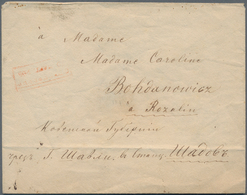 à
Madame
Madame Caroline
Bohdanowisz
à Rozalin
Ковенской Губерніи
чрезъ Г. Шавли, въ